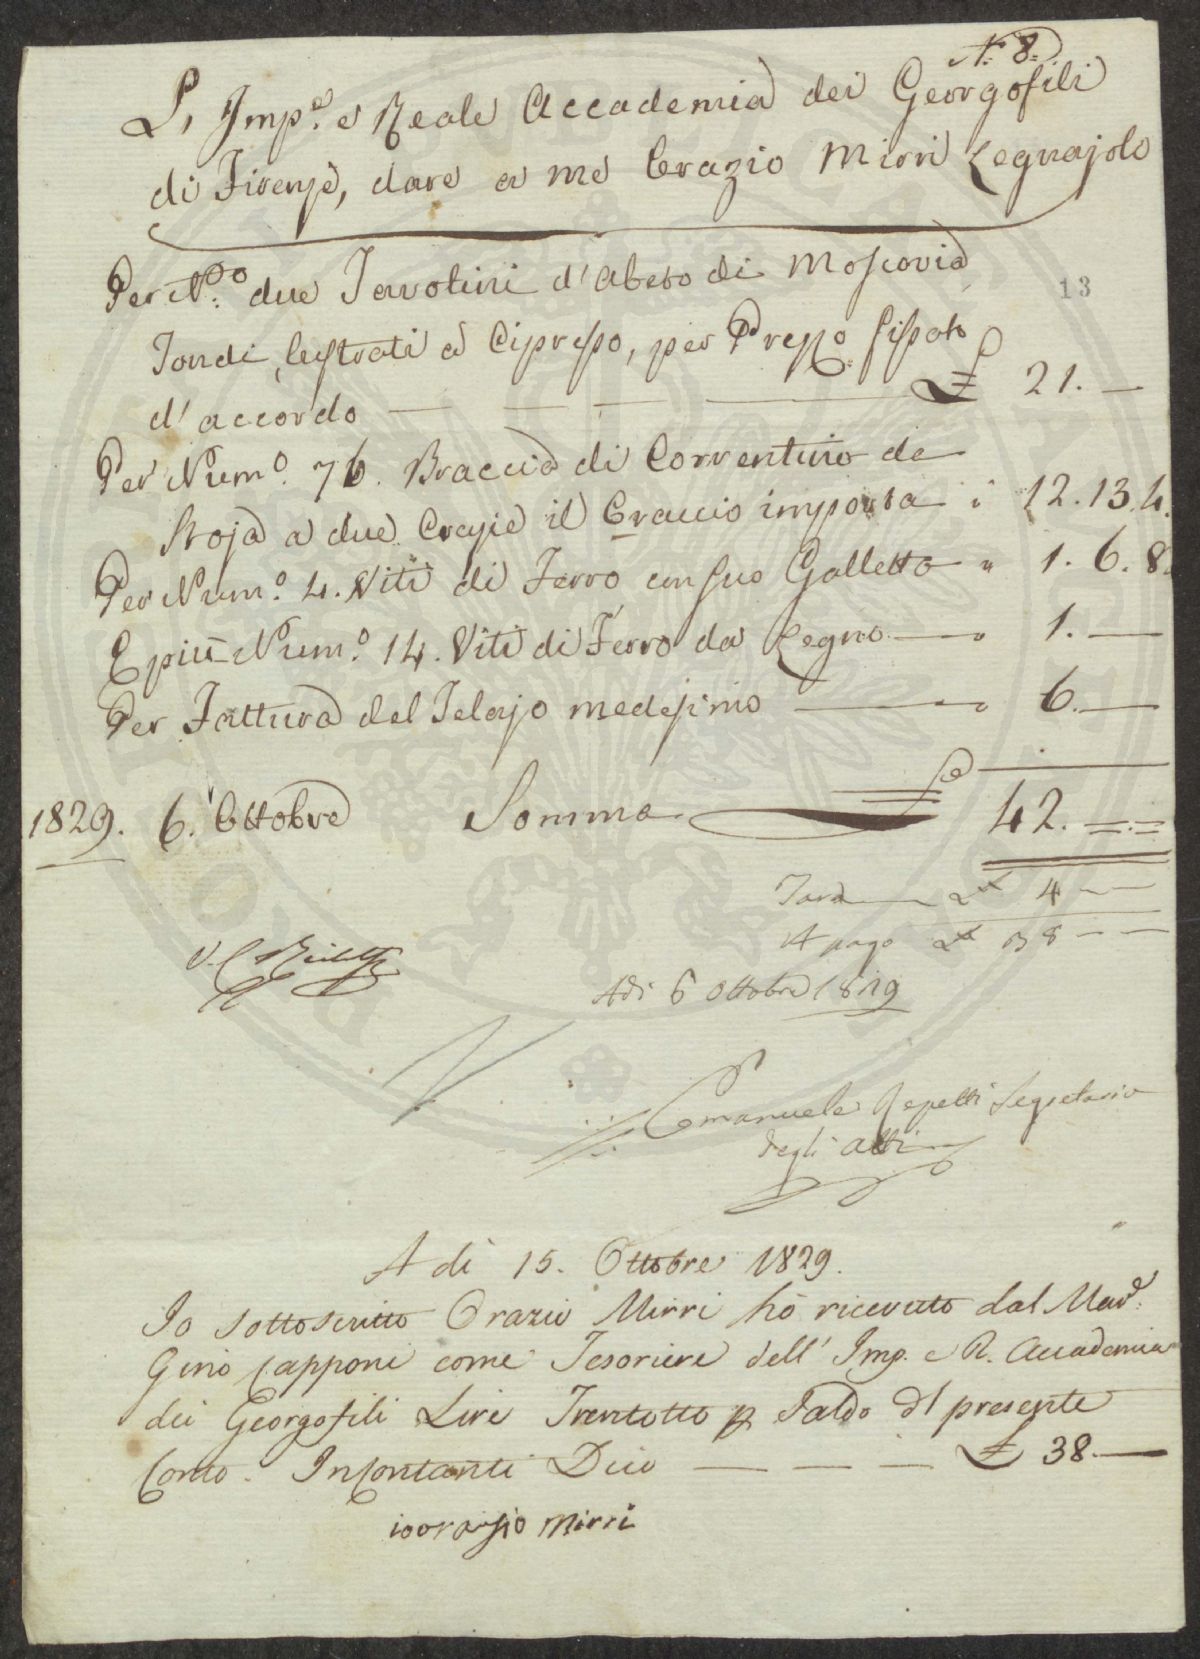 N.º 8.
L'Imp.e e Reale Accademia dei Georgofili
di Firenze, dare a me Orazio Mirri Legnajolo
13
Per N.º due Tavolini d'Abeto di Moscovia
Tondi, lustrati a Cipresso, per Prezzo fissato
d'accordo — — — — £ 21. —
Per Num.º 76. Braccia di Correntino da
Stoja a due Crazie il Braccio importa " 12. 13. 4.
Per Num.º 4. Viti di Ferro con suo Galletto " 1. 6. 8.
E più Num.º 14. Viti di Ferro da Legno — " 1. —
Per Fattura del Telajo medesimo — " 6. —
1829. 6. Ottobre Somma £ 42. =.=
Tara — £ 4 — —
A pago £ 38 — —
Adì 6 Ottobre 1829
Emanuele Repetti Segretario
degli Atti
A dì 15. Ottobre 1829.
Io sottoscritto Orazio Mirri hò ricevuto dal Mar.e
Gino Capponi come Tesoriere dell' Imp. e R. Accademia
dei Georgofili Lire Trentotto p Saldo dl presente
Conto. In Contanti Dico — — — £ 38. —
io orazio Mirri